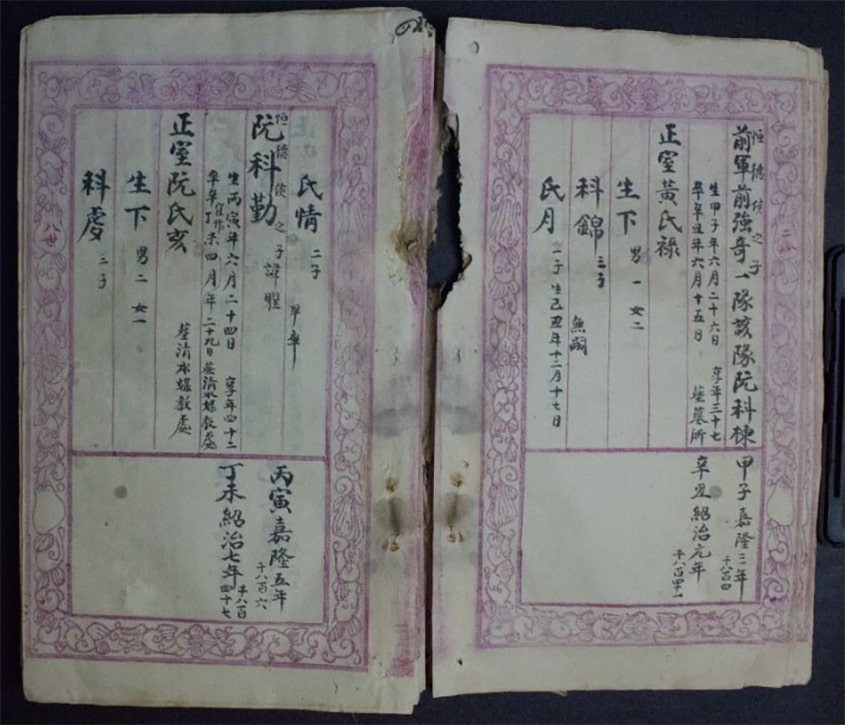 恒德侯之子
前軍前強奇一隊該隊阮科棟
生甲子年六月二十六日 享年三十七
卒辛丑年六月十五日 葬墓所
正室黃氏祿
生下 男一女二
科錦 三子 無嗣
氏月 一子生己丑年十二月十七日
甲子嘉隆三年
千八百四
辛丑紹治元年
千八百四一
氏情 二子 早卒
恒德侯之子
阮科勤 諱
生丙寅年六月二十四日 享年四十二
卒丁未四月年二十九日葬清水螺教處
正室阮氏亥 葬清水螺教處
生下 男二女一
科慶 三子
丙寅嘉隆五年
千八百六
丁未紹治七年
千八百四十七
八世